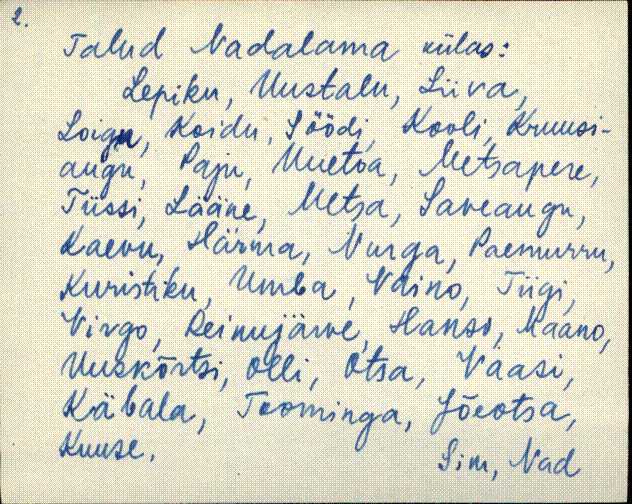 2.
Talud Nadalama külas:
Lepiku, Uustalu, Liiva,
Loigu, Koidu, Söödi, Kooli, Kruusi-
augu, Paju, Uuetoa, Metsapere,
Tüssi, Lääne, Metsa, Saveaugu,
Kaevu, Härma, Nurga, Paemurru,
Kuristiku, Umba, Väino, Tiigi,
Virgo, Reinujärve, Hanso, Maano,
Uuskõrtsi, Olli, Otsa, Vaasi,
Käbala, Toominga, Jõeotsa,
Kuuse.
Sim, Nad